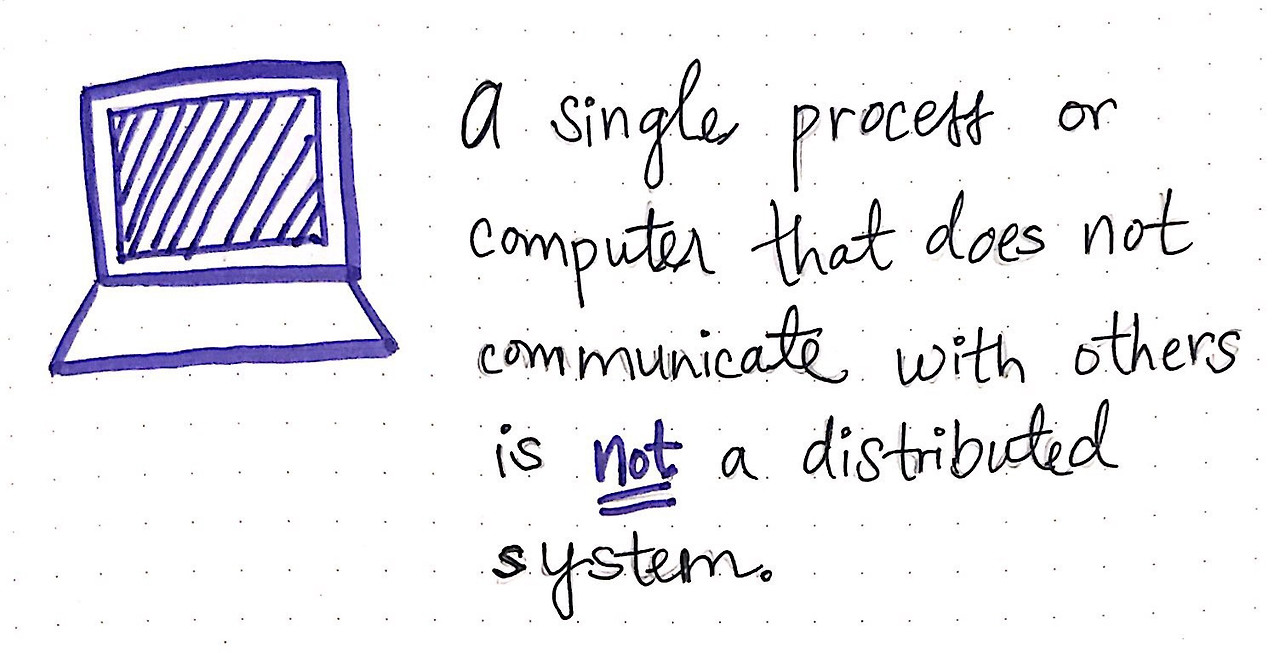 A single process or
computer that does not
communicate with others
is not a distributed
system.